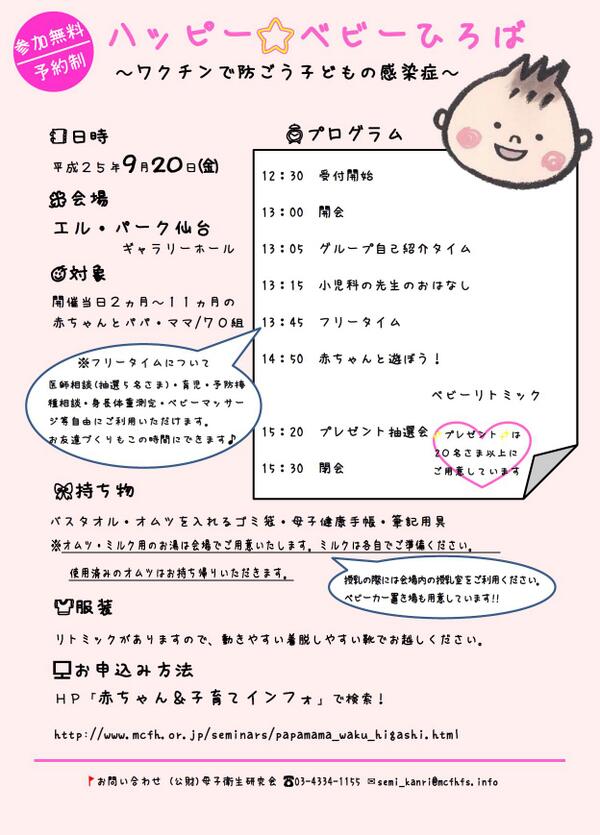 参加無料
予約制
ハッピー☆ベビーひろば
～ワクチンで防ごう子どもの感染症～
日時
平成２５年９月２０日(金)
会場
エル・パーク仙台
ギャラリーホール
対象
開催当日２ヵ月～１１ヵ月の
赤ちゃんとパパ・ママ/７０組
※フリータイムについて
医師相談(抽選５名さま)・育児・予防接
種相談・身長体重測定・ベビーマッサー
ジ等自由にご利用いただけます。
お友達づくりもこの時間にできます♪
プログラム
12：30 受付開始
13：00 開会
13：05 グループ自己紹介タイム
13：15 小児科の先生のおはなし
13：45 フリータイム
14：50 赤ちゃんと遊ぼう！
ベビーリトミック
15：20 プレゼント抽選会
15：30 閉会
プレゼントは
20名さま以上に
ご用意しています
持ち物
バスタオル・オムツを入れるゴミ袋・母子健康手帳・筆記用具
※オムツ・ミルク用のお湯は会場でご用意いたします。ミルクは各自でご準備ください。
使用済みのオムツはお持ち帰りいただきます。
授乳の際には会場内の授乳室をご利用ください。
ベビーカー置き場も用意しています!!
服装
リトミックがありますので、動きやすい着脱しやすい靴でお越しください。
お申込み方法
ＨＰ「赤ちゃん＆子育てインフォ」で検索！
http://www.mcfh.or.jp/seminars/papamama_waku_higashi.html
お問い合わせ (公財)母子衛生研究会 ☎03-4334-1155 ✉semi_kanri@mcfhfs.info